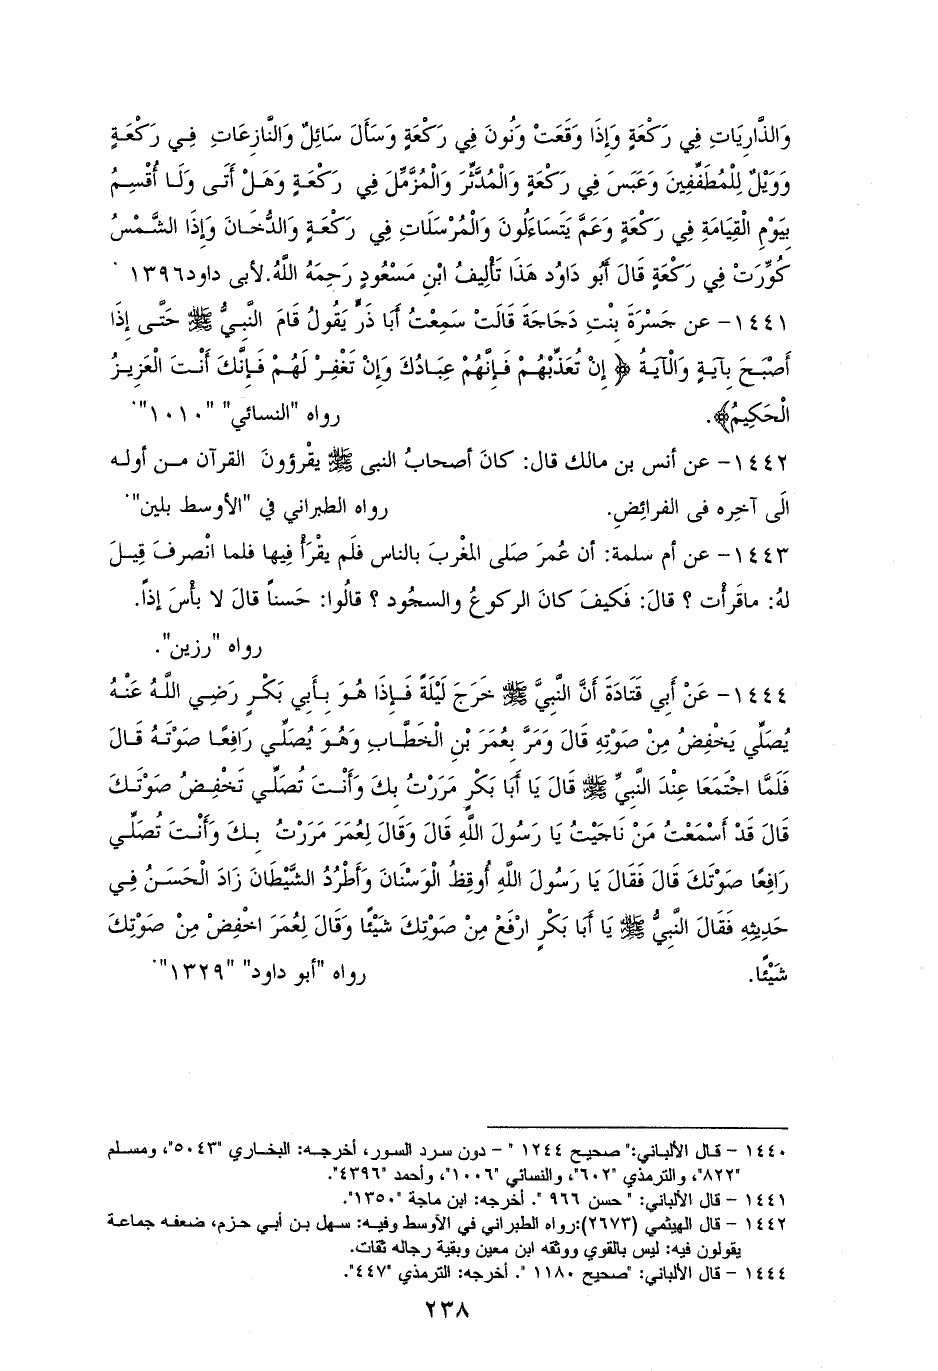 وَالذَّارِيَاتِ فِي رَكْعَةٍ وَإِذَا وَقَعَتْ وَنُونَ فِي رَكْعَةٍ وَسَأَلَ سَائِلٌ وَالنَّازِعَاتِ فِي رَكْعَةٍ
وَوَيْلٌ لِلْمُطَفِّفِينَ وَعَبَسَ فِي رَكْعَةٍ وَالْمُدَّثِّرَ وَالْمُزَّمِّلَ فِي رَكْعَةٍ وَهَلْ أَتَى وَلَا أُقْسِمُ
بِيَوْمِ الْقِيَامَةِ فِي رَكْعَةٍ وَعَمَّ يَتَسَاءَلُونَ وَالْمُرْسَلَاتِ فِي رَكْعَةٍ وَالدُّخَانَ وَإِذَا الشَّمْسُ
كُوِّرَتْ فِي رَكْعَةٍ قَالَ أَبُو دَاوُد هَذَا تَأْلِيفُ ابْنِ مَسْعُودٍ رَحِمَهُ اللَّهُ.لأبى داود١٣٩٦ .
١٤٤١- عن جَسْرَةَ بِنْتِ دَجَاجَةَ قَالَتْ سَمِعْتُ أَبَا ذَرٍّ يَقُولُ قَامَ النَّبِيُّ ﷺ حَتَّى إِذَا
أَصْبَحَ بِآيَةٍ وَالْآيَةُ ﴿ إِنْ تُعَذِّبْهُمْ فَإِنَّهُمْ عِبَادُكَ وَإِنْ تَغْفِرْ لَهُمْ فَإِنَّكَ أَنْتَ الْعَزِيزُ
الْحَكِيمُ﴾. رواه "النسائي" "١٠١٠".
١٤٤٢- عن أنس بن مالك قال: كانَ أصحابُ النبى ﷺ يقْرؤونَ القرآن من أوله
الَى آخِره فى الفرائِضِ. رواه الطبراني في "الأوسط بلين".
١٤٤٣- عن أم سلمة: أن عُمرَ صَلى المغْربَ بالناس فلَم يقْرَأْ فِيها فلما انْصرفَ قِيلَ
لهُ: ماقَرأْت ؟ قالَ: فَكيفَ كانَ الركوعُ والسجُود ؟ قالُوا: حَسناً قالَ لا بأْسَ إذاً.
رواه "رزين".
١٤٤٤- عَنْ أَبِي قَتَادَةَ أَنَّ النَّبِيَّ ﷺ خَرَجَ لَيْلَةً فَإِذَا هُوَ بِأَبِي بَكْرٍ رَضِيَ اللَّهُ عَنْهُ
يُصَلِّي يَخْفِضُ مِنْ صَوْتِهِ قَالَ وَمَرَّ بِعُمَرَ بْنِ الْخَطَّابِ وَهُوَ يُصَلِّي رَافِعًا صَوْتَهُ قَالَ
فَلَمَّا اجْتَمَعَا عِنْدَ النَّبِيِّ ﷺ قَالَ يَا أَبَا بَكْرٍ مَرَرْتُ بِكَ وَأَنْتَ تُصَلِّي تَخْفِضُ صَوْتَكَ
قَالَ قَدْ أَسْمَعْتُ مَنْ نَاجَيْتُ يَا رَسُولَ اللَّهِ قَالَ وَقَالَ لِعُمَرَ مَرَرْتُ بِكَ وَأَنْتَ تُصَلِّي
رَافِعًا صَوْتَكَ قَالَ فَقَالَ يَا رَسُولَ اللَّهِ أُوقِظُ الْوَسْنَانَ وَأَطْرُدُ الشَّيْطَانَ زَادَ الْحَسَنُ فِي
حَدِيثِهِ فَقَالَ النَّبِيُّ ﷺ يَا أَبَا بَكْرٍ ارْفَعْ مِنْ صَوْتِكَ شَيْئًا وَقَالَ لِعُمَرَ اخْفِضْ مِنْ صَوْتِكَ
شَيْئًا. رواه "أبو داود" "١٣٢٩".
١٤٤٠ - قال الألباني:" صحيح ١٢٤٤ " - دون سرد السور، أخرجه: البخاري "٥٠٤٣"، ومسلم
"٨٢٢"، والترمذي "٦٠٢"، والنسائي "١٠٠٦"، وأحمد "٤٣٩٦".
١٤٤١ - قال الألباني: " حسن ٩٦٦ ". أخرجه: ابن ماجة "١٣٥٠".
١٤٤٢ - قال الهيثمي (٢٦٧٣):رواه الطبراني في الأوسط وفيه: سهل بن أبي حزم، ضعفه جماعة
يقولون فيه: ليس بالقوي ووثقه ابن معين وبقية رجاله ثقات.
١٤٤٤ - قال الألباني: "صحيح ١١٨٠ ". أخرجه: الترمذي "٤٤٧".
٢٣٨